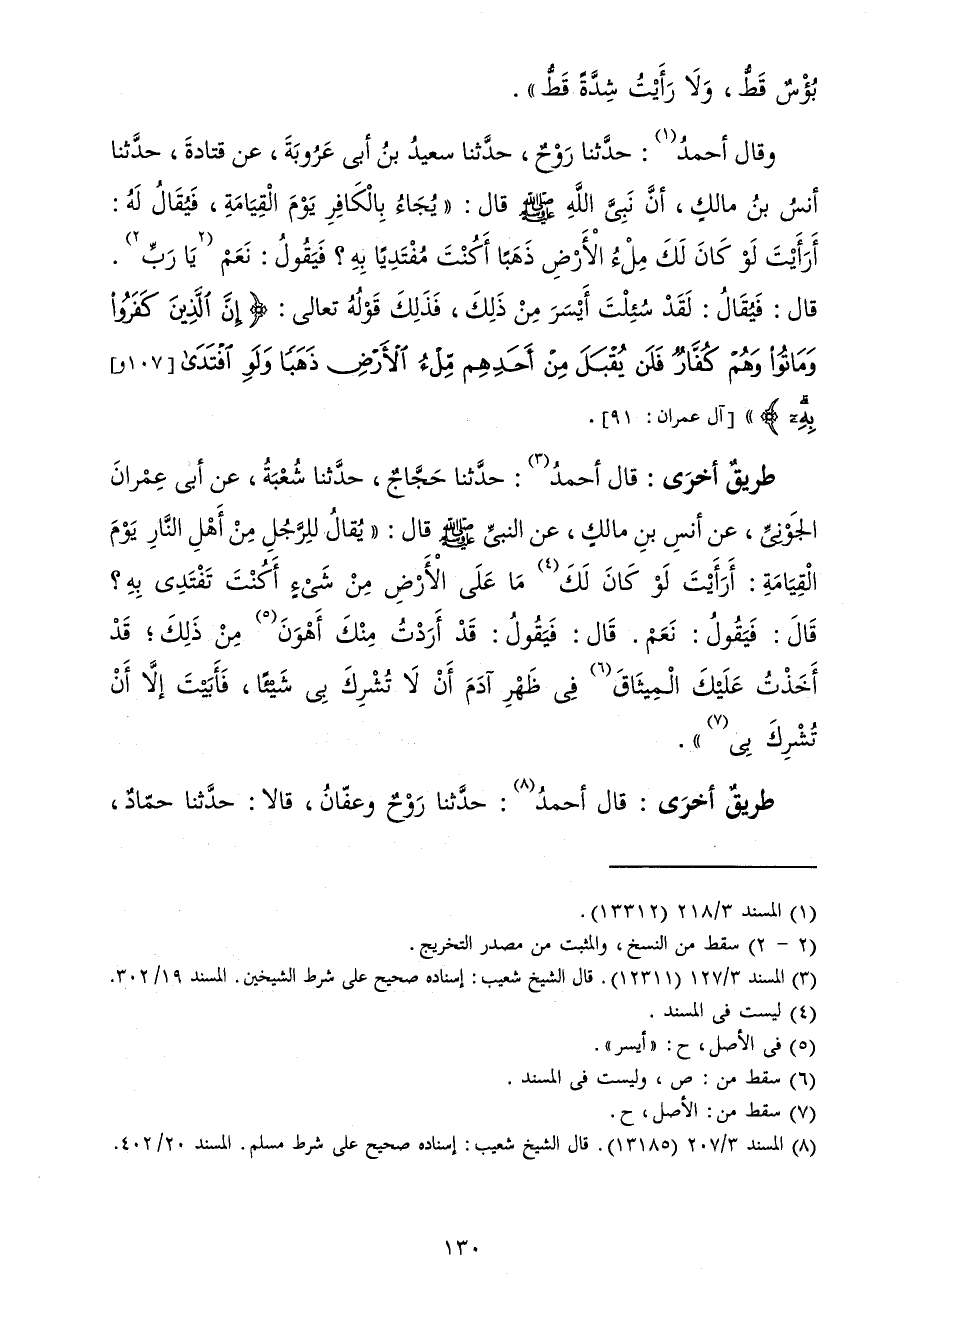 بُؤْسٌ قَطُّ ، وَلَا رَأَيْتُ شِدَّةً قَطُّ » .
وقال أحمدُ(١) : حدَّثنا رَوْحٌ ، حدَّثنا سعيدُ بنُ أبى عَرُوبَةَ ، عن قتادةَ ، حدَّثنا
أنسُ بنُ مالكٍ ، أنَّ نَبِىَّ اللَّهِ ﷺ قال : « يُجَاءُ بِالْكَافِرِ يَوْمَ الْقِيَامَةِ ، فَيُقَالُ لَهُ :
أَرَأَيْتَ لَوْ كَانَ لَكَ مِلْءُ الْأَرْضِ ذَهَبًا أَكُنْتَ مُفْتَدِيًا بِهِ ؟ فَيَقُولُ : نَعَمْ (٢يَا رَبِّ٢) .
قال : فَيُقَالُ : لَقَدْ سُئِلْتَ أَيْسَرَ مِنْ ذَلِكَ ، فَذَلِكَ قَوْلُهُ تعالى : ﴿ إِنَّ ٱلَّذِينَ كَفَرُوا۟
وَمَاتُوا۟ وَهُمْ كُفَّارٌ فَلَن يُقْبَلَ مِنْ أَحَدِهِم مِّلْءُ ٱلْأَرْضِ ذَهَبًا وَلَوِ ٱفْتَدَىٰ [١٠٧و]
بِهِۦٓ ﴾ » [آل عمران : ٩١] .
طريقٌ أخرَى : قال أحمدُ(٣) : حدَّثنا حَجَّاجٌ ، حدَّثنا شُعْبَةُ ، عن أبى عِمْرانَ
الجَوْنِىِّ ، عن أنسِ بنِ مالكٍ ، عن النبىِّ ﷺ قال : « يُقالُ للِرَّجُلِ مِنْ أَهْلِ النَّارِ يَوْمَ
الْقِيَامَةِ : أَرَأَيْتَ لَوْ كَانَ لَكَ(٤) مَا عَلَى الْأَرْضِ مِنْ شَىْءٍ أَكُنْتَ تَفْتَدِى بِهِ ؟
قَالَ : فَيَقُولُ : نَعَمْ . قَالَ : فَيَقُولُ : قَدْ أَرَدْتُ مِنْكَ أَهْوَنَ(٥) مِنْ ذَلِكَ ؛ قَدْ
أَخَذْتُ عَلَيْكَ الْمِيثَاقَ(٦) فِى ظَهْرِ آدَمَ أَنْ لَا تُشْرِكَ بِى شَيْئًا ، فَأَبَيْتَ إلَّا أَنْ
تُشْرِكَ بِى(٧) » .
طريقٌ أخرَى : قال أحمدُ(٨) : حدَّثنا رَوْحٌ وعفّانُ ، قالا : حدَّثنا حمّادٌ ،
(١) المسند ٢١٨/٣ (١٣٣١٢) .
(٢ - ٢) سقط من النسخ ، والمثبت من مصدر التخريج .
(٣) المسند ١٢٧/٣ (١٢٣١١) . قال الشيخ شعيب : إسناده صحيح على شرط الشيخين . المسند ٣٠٢/١٩ .
(٤) ليست فى المسند .
(٥) فى الأصل ، ح : « أيسر » .
(٦) سقط من : ص ، وليست فى المسند .
(٧) سقط من : الأصل ، ح .
(٨) المسند ٢٠٧/٣ (١٣١٨٥) . قال الشيخ شعيب : إسناده صحيح على شرط مسلم . المسند ٤٠٢/٢٠ .
١٣٠